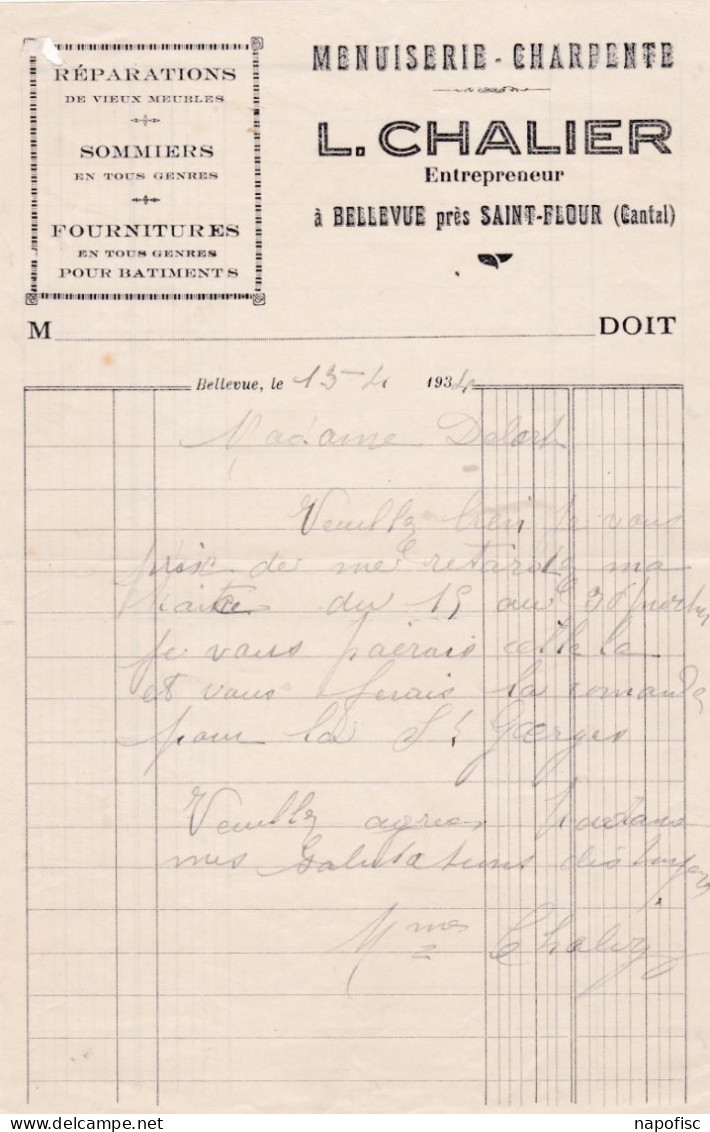 RÉPARATIONS
DE VIEUX MEUBLES
SOMMIERS
EN TOUS GENRES
FOURNITURES
EN TOUS GENRES
POUR BATIMENTS
MENUISERIE - CHARPENTE
L. CHALIER
Entrepreneur
à BELLEVUE près SAINT-FLOUR (Cantal)
M DOIT
Bellevue, le 15-4 1934
Madame Delort
Veuillez bien je vous
prix de me retarder ma
traite du 15 au 30
je vous paierais celle la
et vous ferais la comande
pour la St Georges
Veuillez agreer Madame
mes salutations
Mme Chalier
napofisc